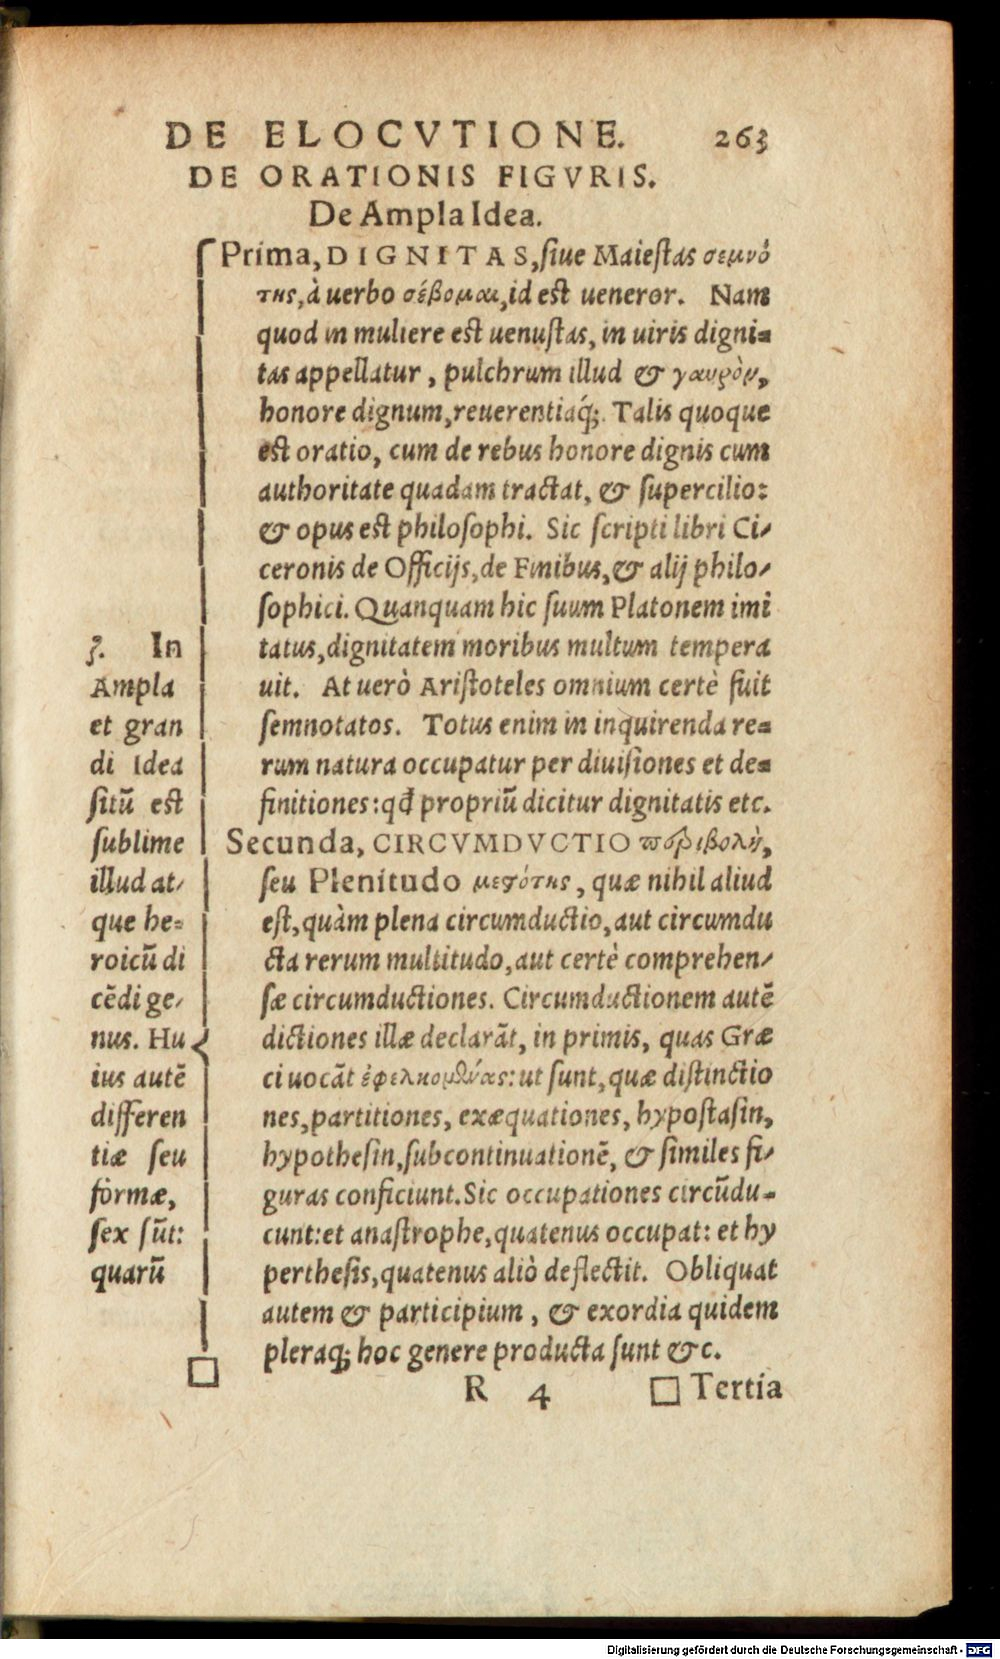 DE ELOCVTIONE. 263
DE ORATIONIS FIGVRIS.
De Ampla Idea.
3. In
Ampla
et gran
di Idea
ſitū est
ſublime
illud at-
que he-
roicū di
cēdi ge-
nus. Hu
ius autē
differen
tiæ ſeu
formæ,
ſex ſūt:
quarū
Prima, DIGNITAS, ſiue Maiestas σεμνό
της, à uerbo σέβομαι, id est ueneror. Nam
quod in muliere est uenustas, in uiris digni-
tas appellatur, pulchrum illud & γαυρὸν,
honore dignum, reuerentiaq́;. Talis quoque
est oratio, cum de rebus honore dignis cum
authoritate quadam tractat, & ſupercilio:
& opus est philoſophi. Sic ſcripti libri Ci-
ceronis de Officijs, de Finibus, & alij philo-
ſophici. Quanquam hic ſuum Platonem imi
tatus, dignitatem moribus multum tempera
uit. At uerò Ariſtoteles omnium certè fuit
ſemnotatos. Totus enim in inquirenda re-
rum natura occupatur per diuiſiones et de-
finitiones: qd̓ propriū dicitur dignitatis etc.
Secunda, CIRCVMDVCTIO περιβολὴ,
ſeu Plenitudo μεστότης, quæ nihil aliud
est, quàm plena circumductio, aut circumdu
cta rerum multitudo, aut certè comprehen-
ſæ circumductiones. Circumductionem autē
dictiones illæ declarāt, in primis, quas Græ
ci uocāt ἐφελκομένας: ut ſunt, quæ diſtinctio
nes, partitiones, exæquationes, hypoſtaſin,
hypotheſin, ſubcontinuationē, & ſimiles fi-
guras conficiunt. Sic occupationes circūdu-
cunt: et anaſtrophe, quatenus occupat: et hy
pertheſis, quatenus aliò deflectit. Obliquat
autem & participium, & exordia quidem
pleraq; hoc genere producta ſunt &c.
R 4 Tertia
Digitalisierung gefördert durch die Deutsche Forschungsgemeinschaft - DFG